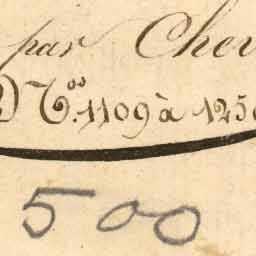 par Chev
Nos. 1109 à 1250
500